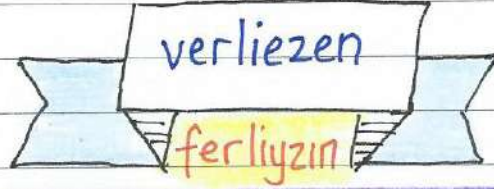 verliezen
ferliyzın